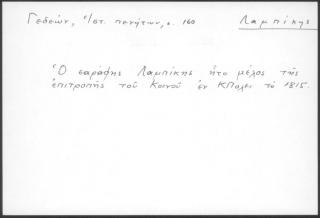 Γεδεών, Ἱστ. πενήτων, σ. 160 Λαμπίκης
Ὁ σαράφης Λαμπίκης ἦτο μέλος τῆς
ἐπιτροπῆς τοῦ Κοινοῦ ἐν ΚΠόλει τὸ 1815.